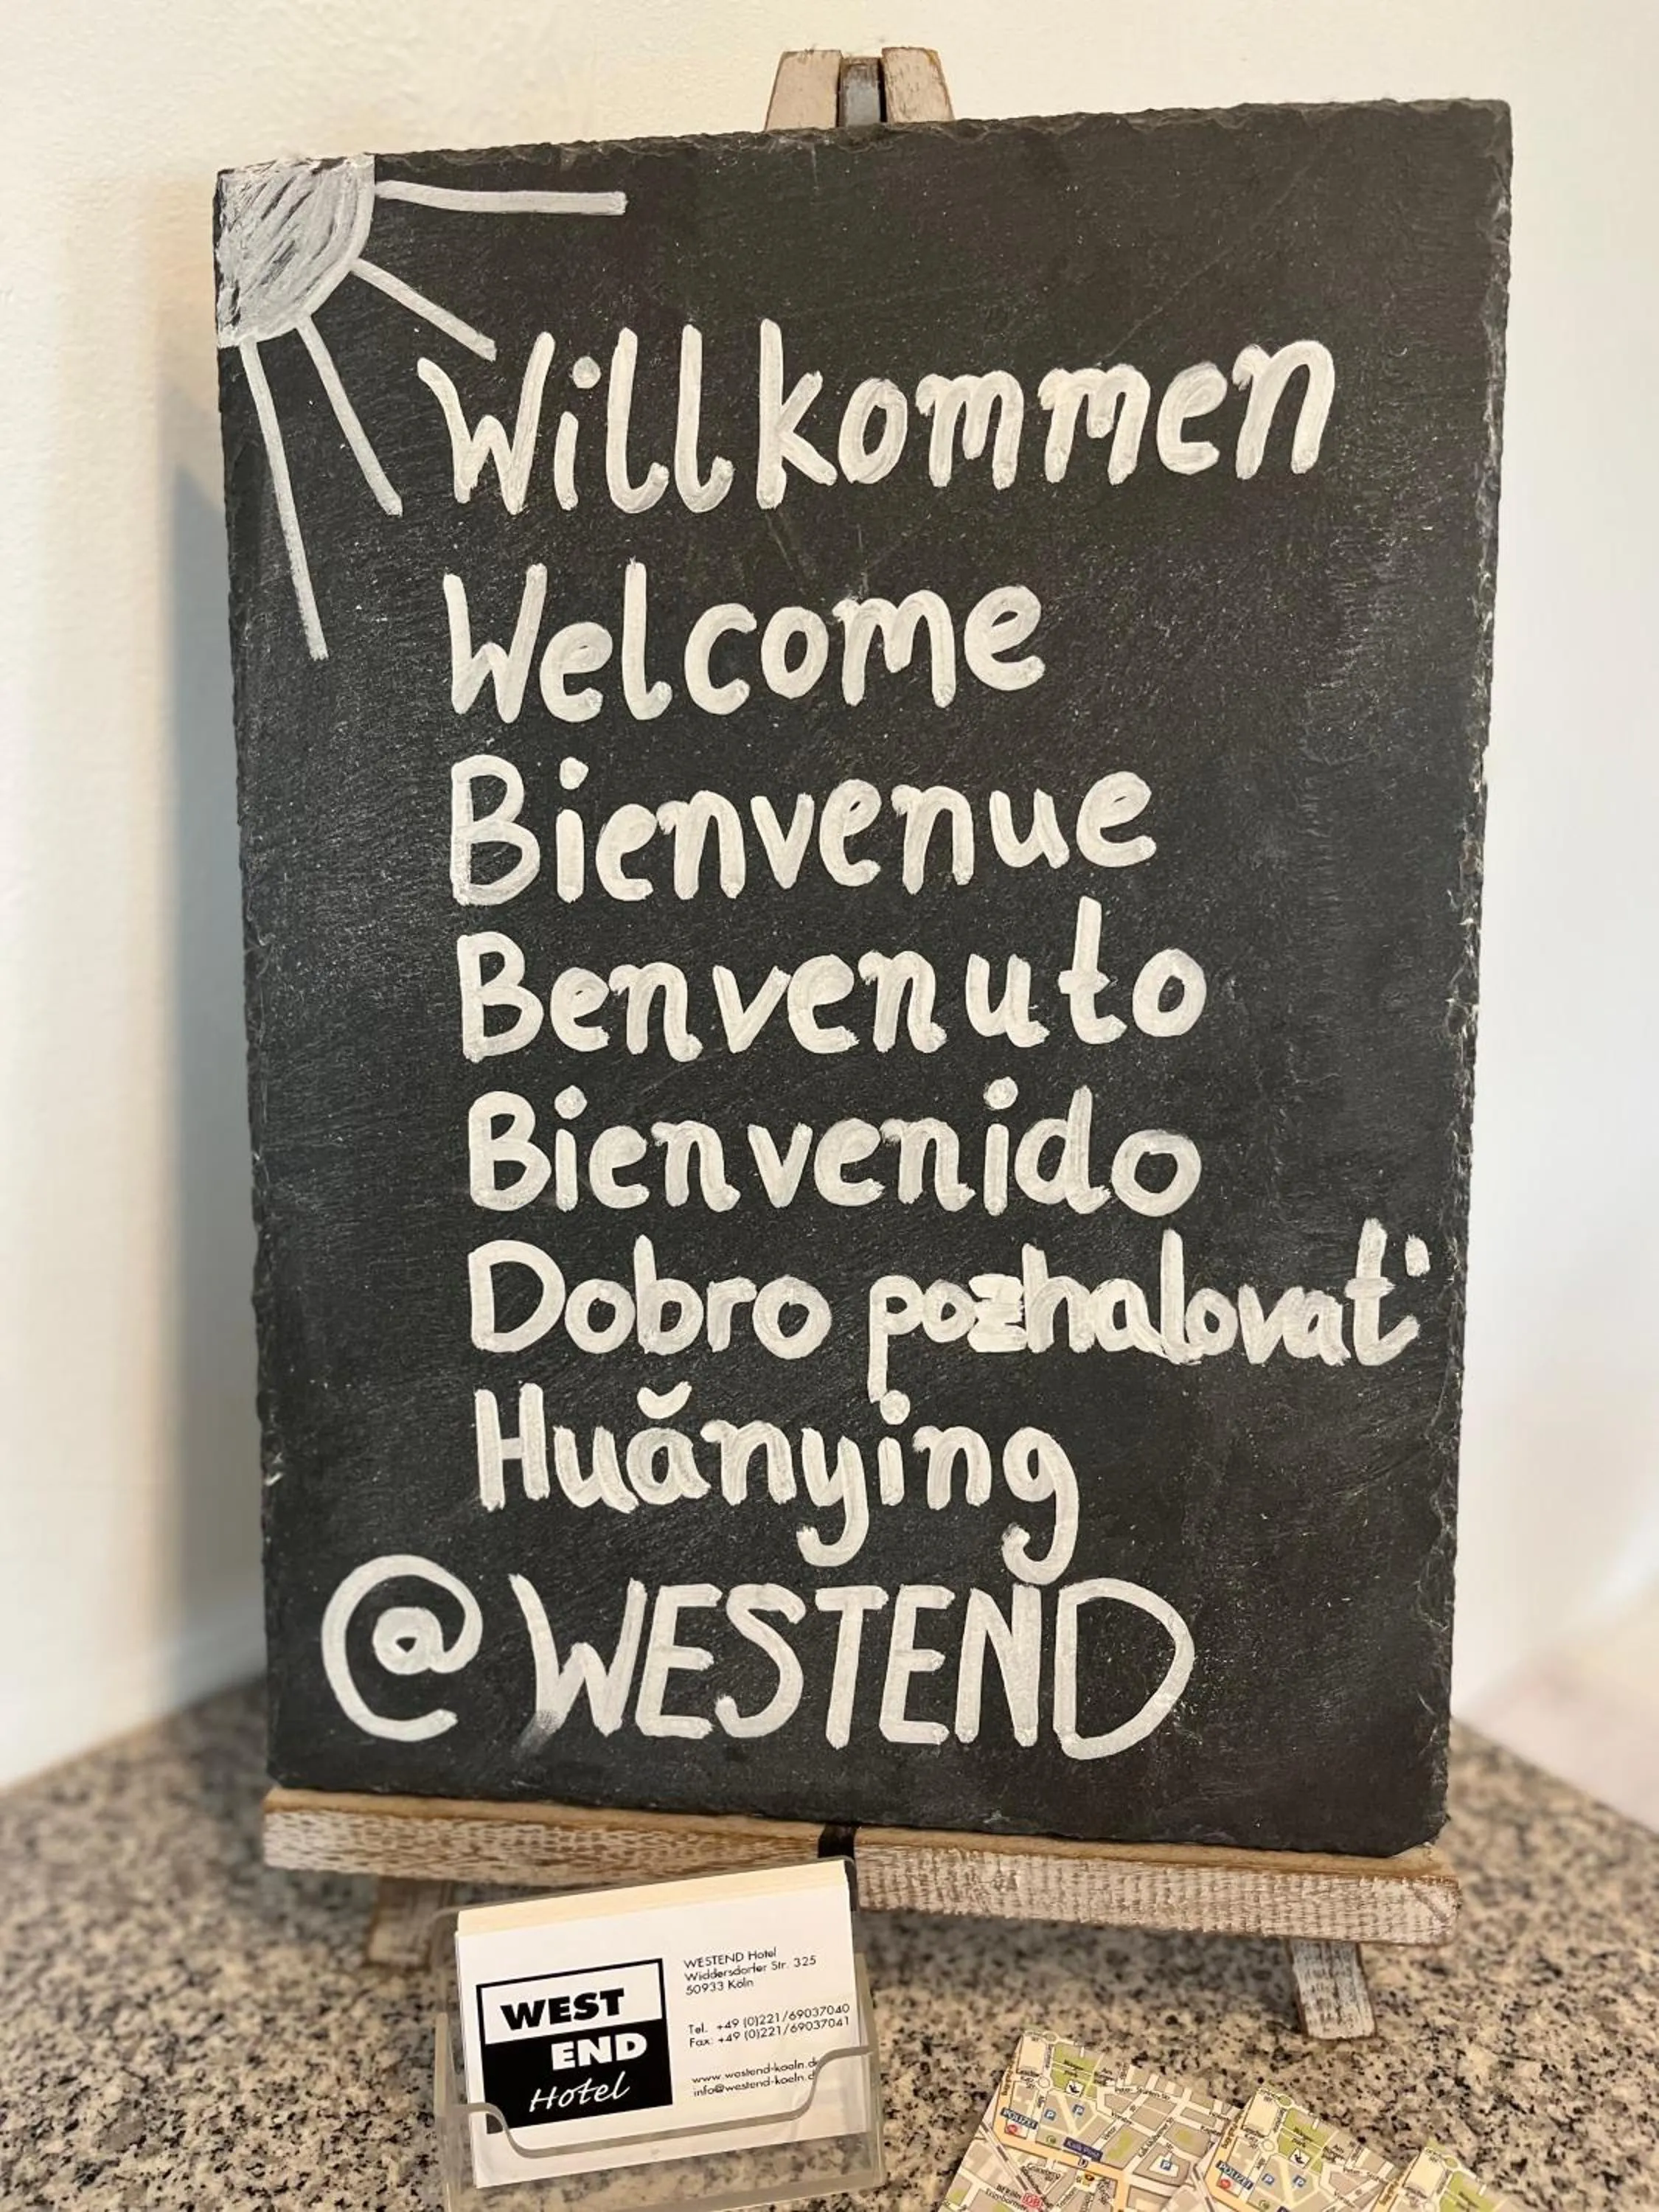 Willkommen
Welcome
Bienvenue
Benvenuto
Bienvenido
Dobro pozhalovat'
Huănying
@WESTEND
WEST
END
Hotel
WESTEND Hotel
Widdersdorfer Str. 325
50933 Köln
Tel. +49 (0)221/69037040
Fax: +49 (0)221/69037041
www.westend-koeln.de
info@westend-koeln.d
POLIZEI
POLIZEI